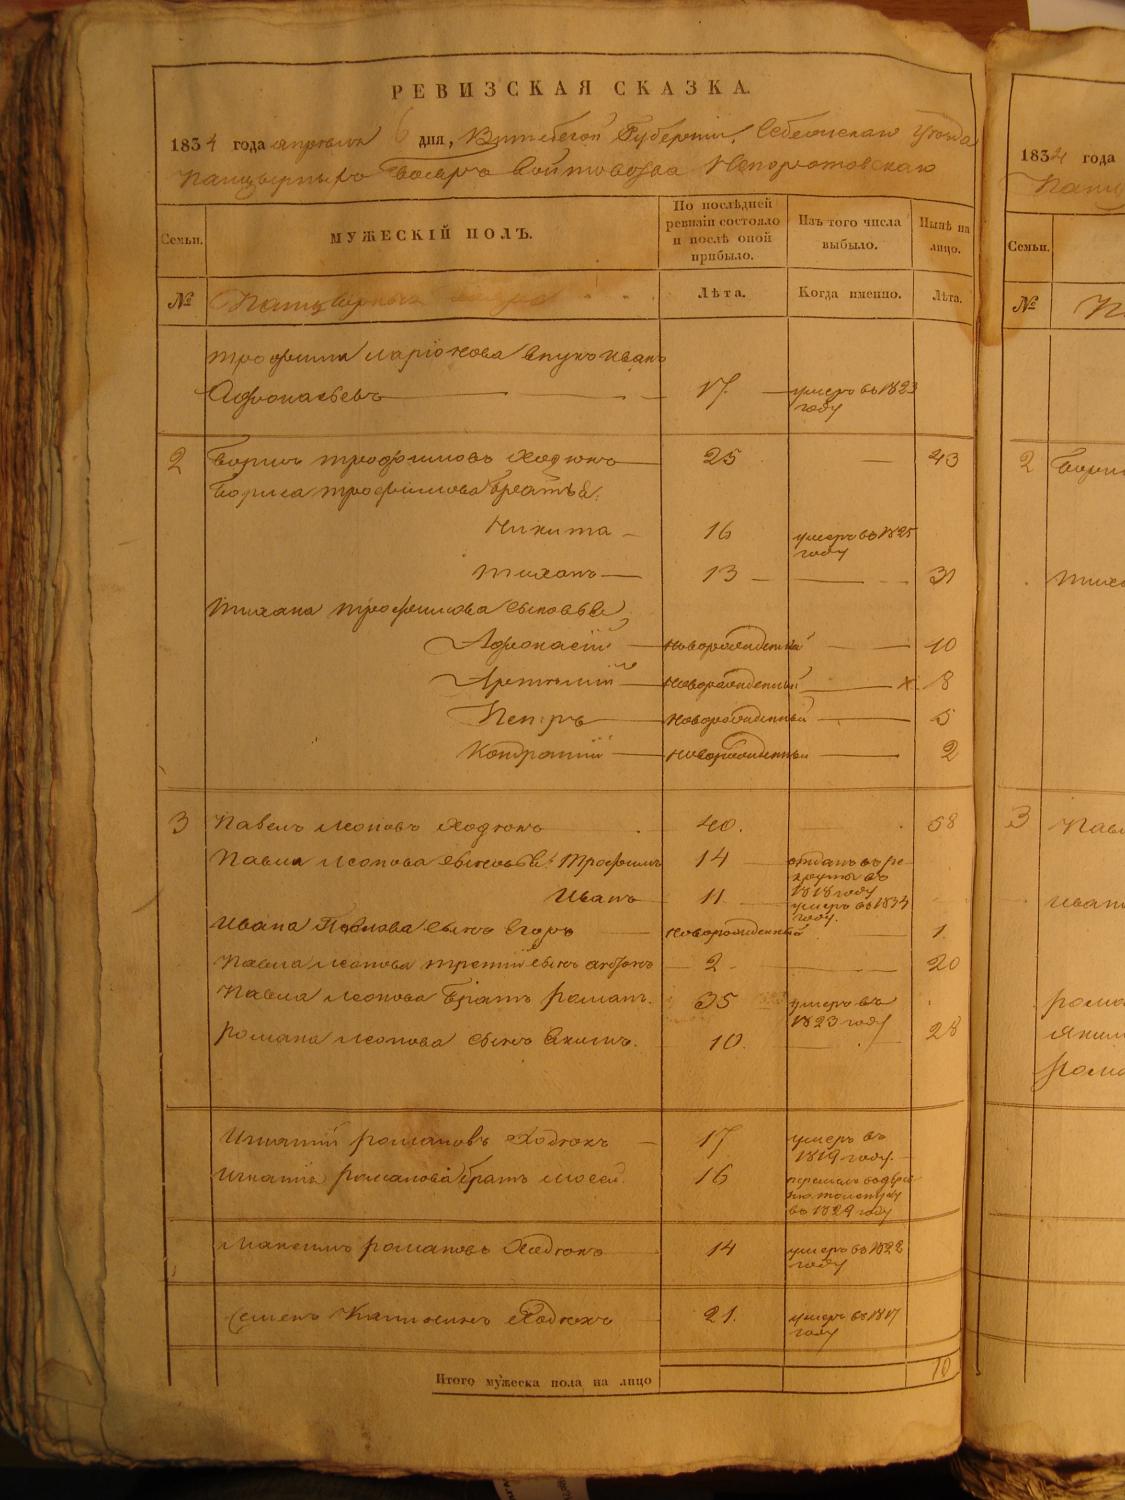 РЕВИЗСКАЯ СКАЗКА.
1834 года апреля 6 дня, Витебской Губернии, Себежскаго уезда
Панцырныхъ Бояръ Войтовства Непоротовскаго
Семьи.
МУЖЕСКІЙ ПОЛЪ.
По послѣдней ревизіи состояло и послѣ оной прибыло.
Изъ того числа выбыло.
Нынѣ на лицо.
№
Панцырныхъ
Лѣта.
Когда именно.
Лѣта.
Трофима Ларіонова внукъ Иванъ
Афонасьевъ 17. умеръ въ 1823 году
2 Борисъ Трофимовъ Ходюкъ 25 — 43
Бориса Трофимова братья:
Никита 16 умеръ въ 1825 году
Тихонъ 13 — 31
Тихана Трофимова сыновья
Афонасій новорожденный — 10
Артемій новорожденный — х 8
Петръ новорожденный — 5
Кондратій новорожденный — 2
3 Павелъ Леоновъ Ходюкъ 40. 58
Павла Леонова сыновья: Трофимъ 14 отданъ въ рекруты въ 1818 году
Иванъ 11 умеръ въ 1834 году.
Ивана Павлова сынъ Егоръ новорожденный 1
Павла Леонова третій сынъ 2 — 20
Павла Леонова братъ Романъ. 35 умеръ въ 1823 году
Романа Леонова сынъ Якимъ. 10. 28
Игнатій Романовъ Ходюкъ — 17 умеръ въ 1819 году.
Игнатія Романова братъ Мосей 16 въ 1829 году
Максимъ Романовъ Ходюкъ 14 умеръ въ 1822 году
Семенъ Ходюкъ 21. умеръ въ 1817 году
Итого мужеска пола на лицо 10
1834 года
Семьи.
№
2 Бори
Тиха
3 Павл
Ивана
Рома
Яким
Рома